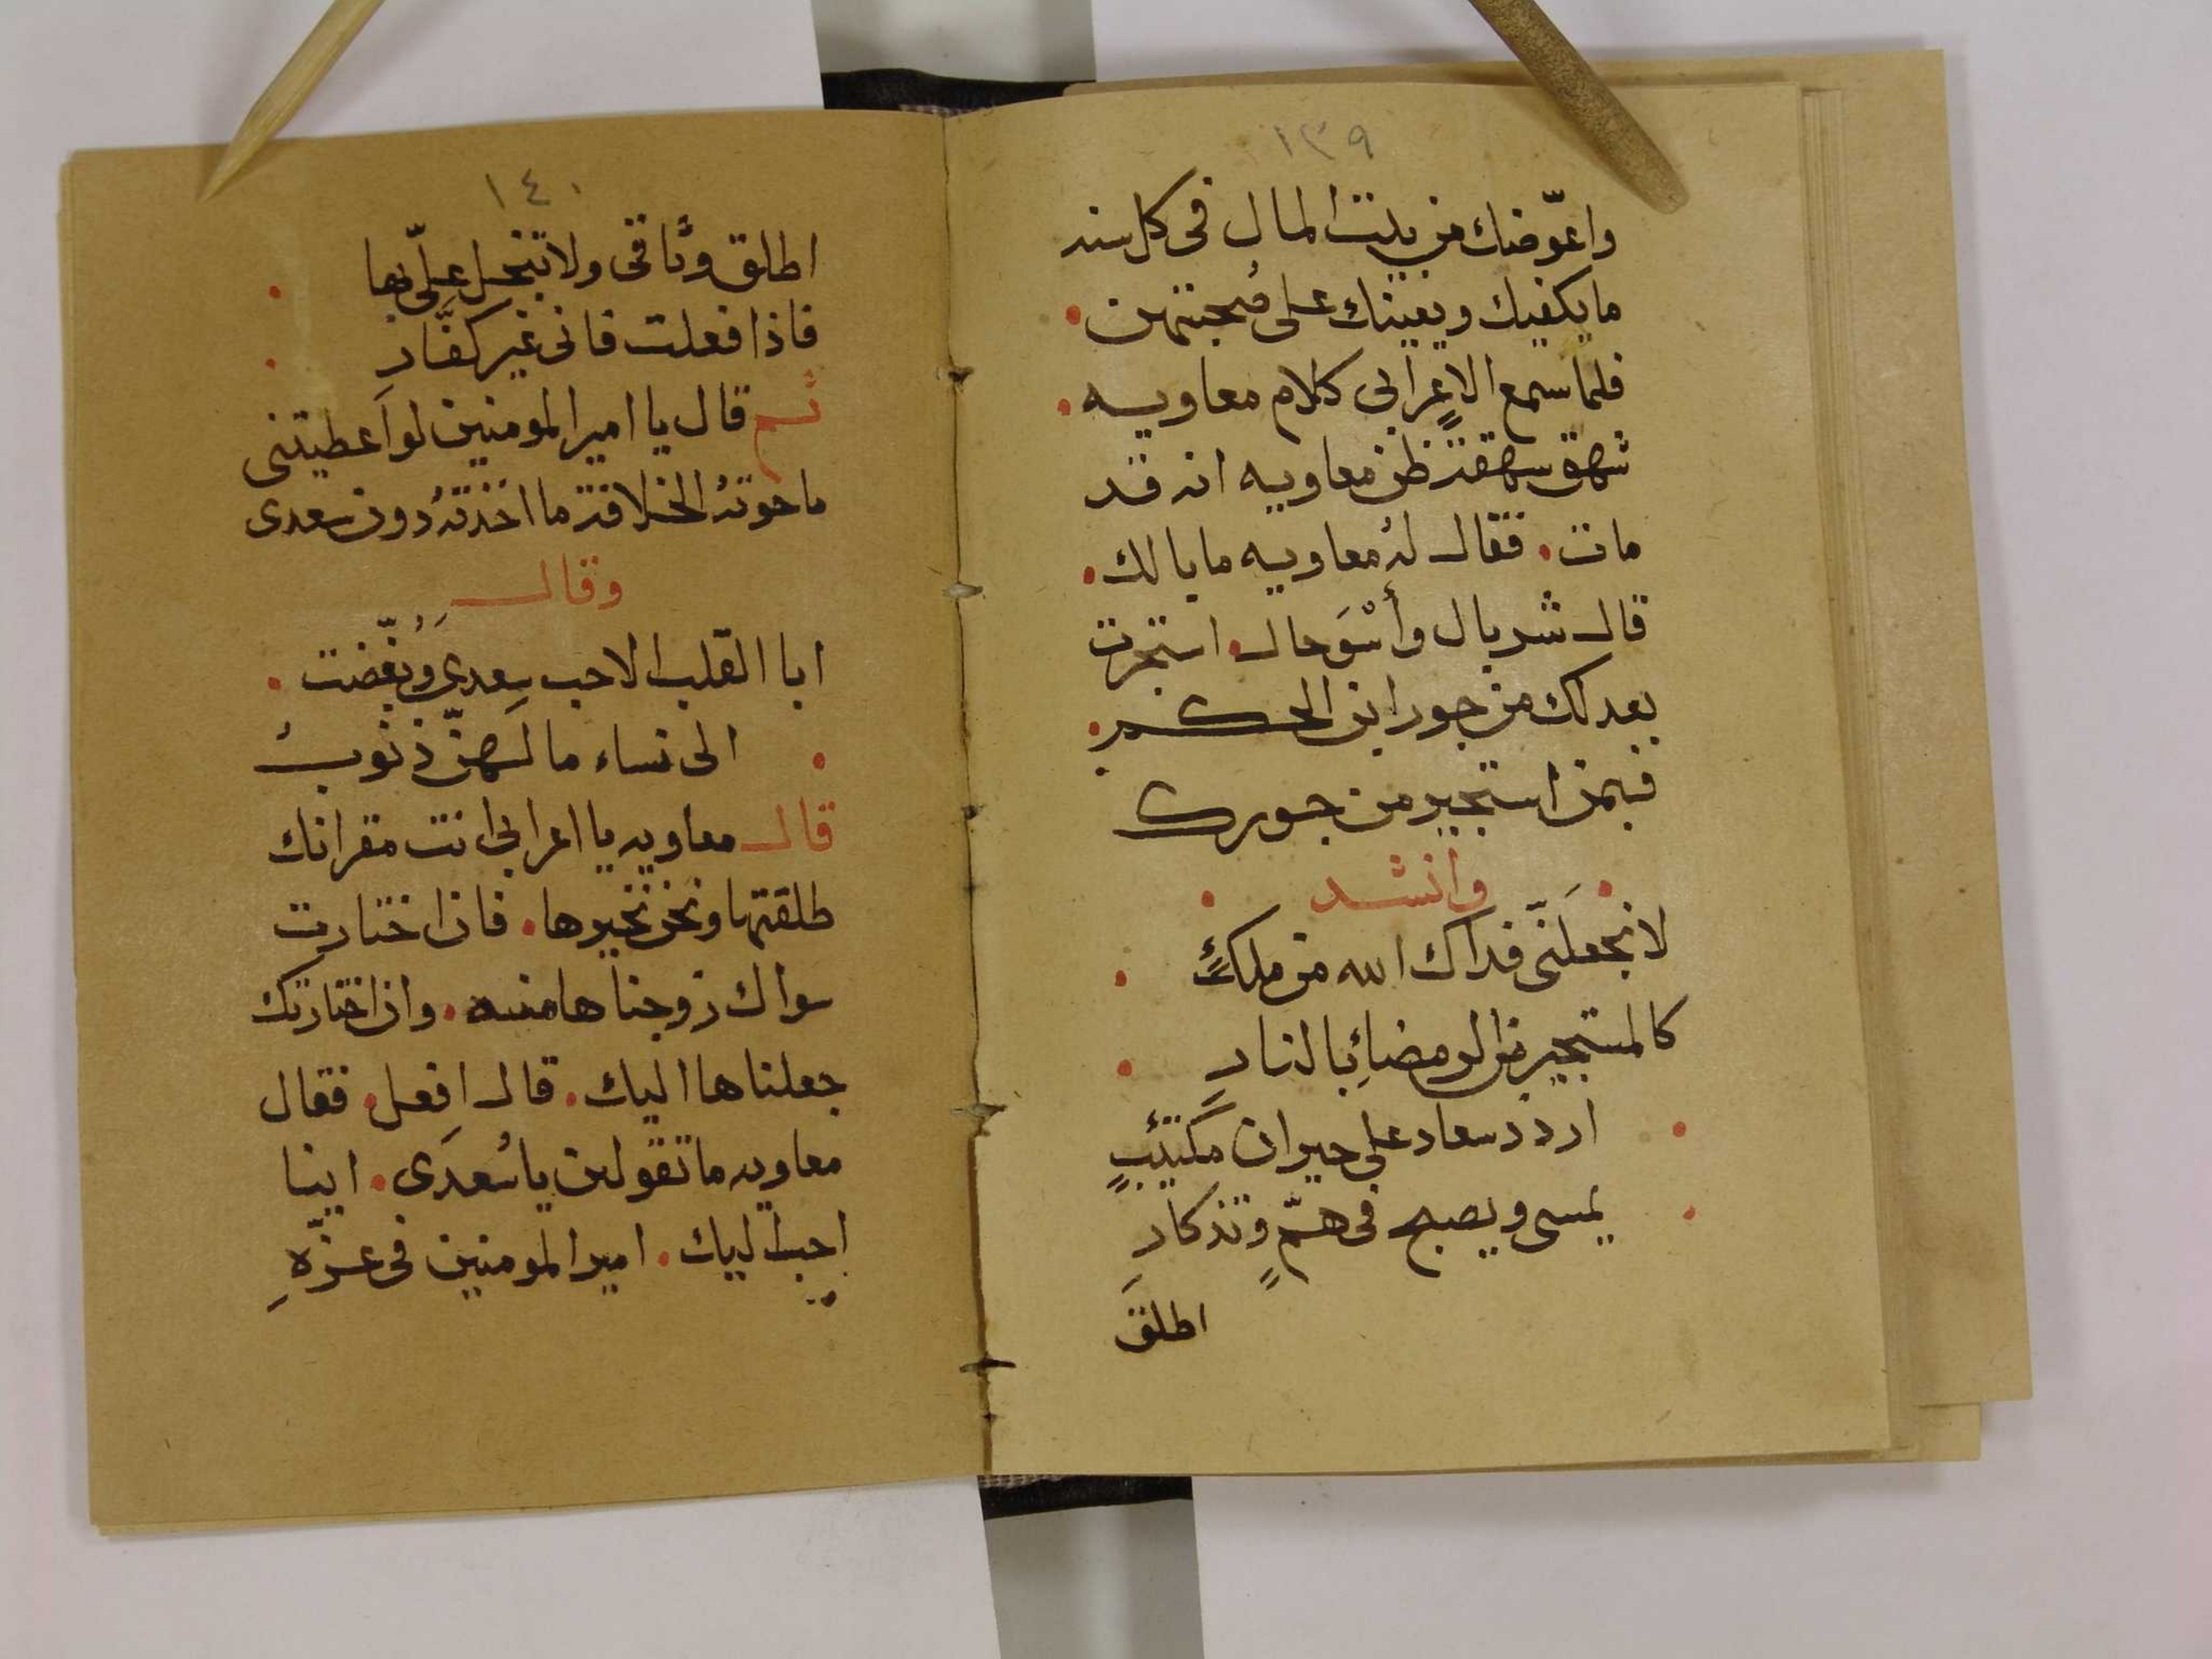 ١٣٩
واعوّضنك من بيت المال فى كل سنه
ما يكفيك ويعينك على صُحبتهن ٠
فلما سمع الاعرابى كلام معاويه ٠
شهق شهقة ظن معاويه انه قد
مات ٠ فقال لهُ معاويه ما بالك ٠
قال شر بال وأسْوَ حال ٠ استجرت
بعدلك من جور ابن الحكم ٠
فبمن استجير من جورك
٠ وانشد ٠
لا تجعلَنّى فداك الله من ملكٍ ٠
كالمستجير من الرمضاءِ بالنارِ ٠
٠ اردد سعاد على حيران مكتئبٍ
٠ يمسى ويصبح فى همٍّ وتذكارِ
اطلق
١٤٠
اطلق وثاقى ولا تبخل علىّ بها ٠
فاذا فعلت فانى غير كفّارِ ٠
ثم قال يا امير المومنين لو اعطيتنى
ما حوتهُ الخلافة ما اخذتهُ دون سعدى
وقال
ابا القلب الا حب سعدى وبُغّضت ٠
٠ الى نساء ما لهنّ ذنوبُ
قال معاويه يا اعرابى انت مقر انك
طلقتها ونحن نخيرها ٠ فان اختارت
سواك زوجناها منه ٠ وان اختارتك
جعلناها اليك ٠ قال افعل ٠ فقال
معاويه ما تقولين يا سُعدَى ٠ اينا
احب اليك ٠ امير المومنين فى عزّهِ